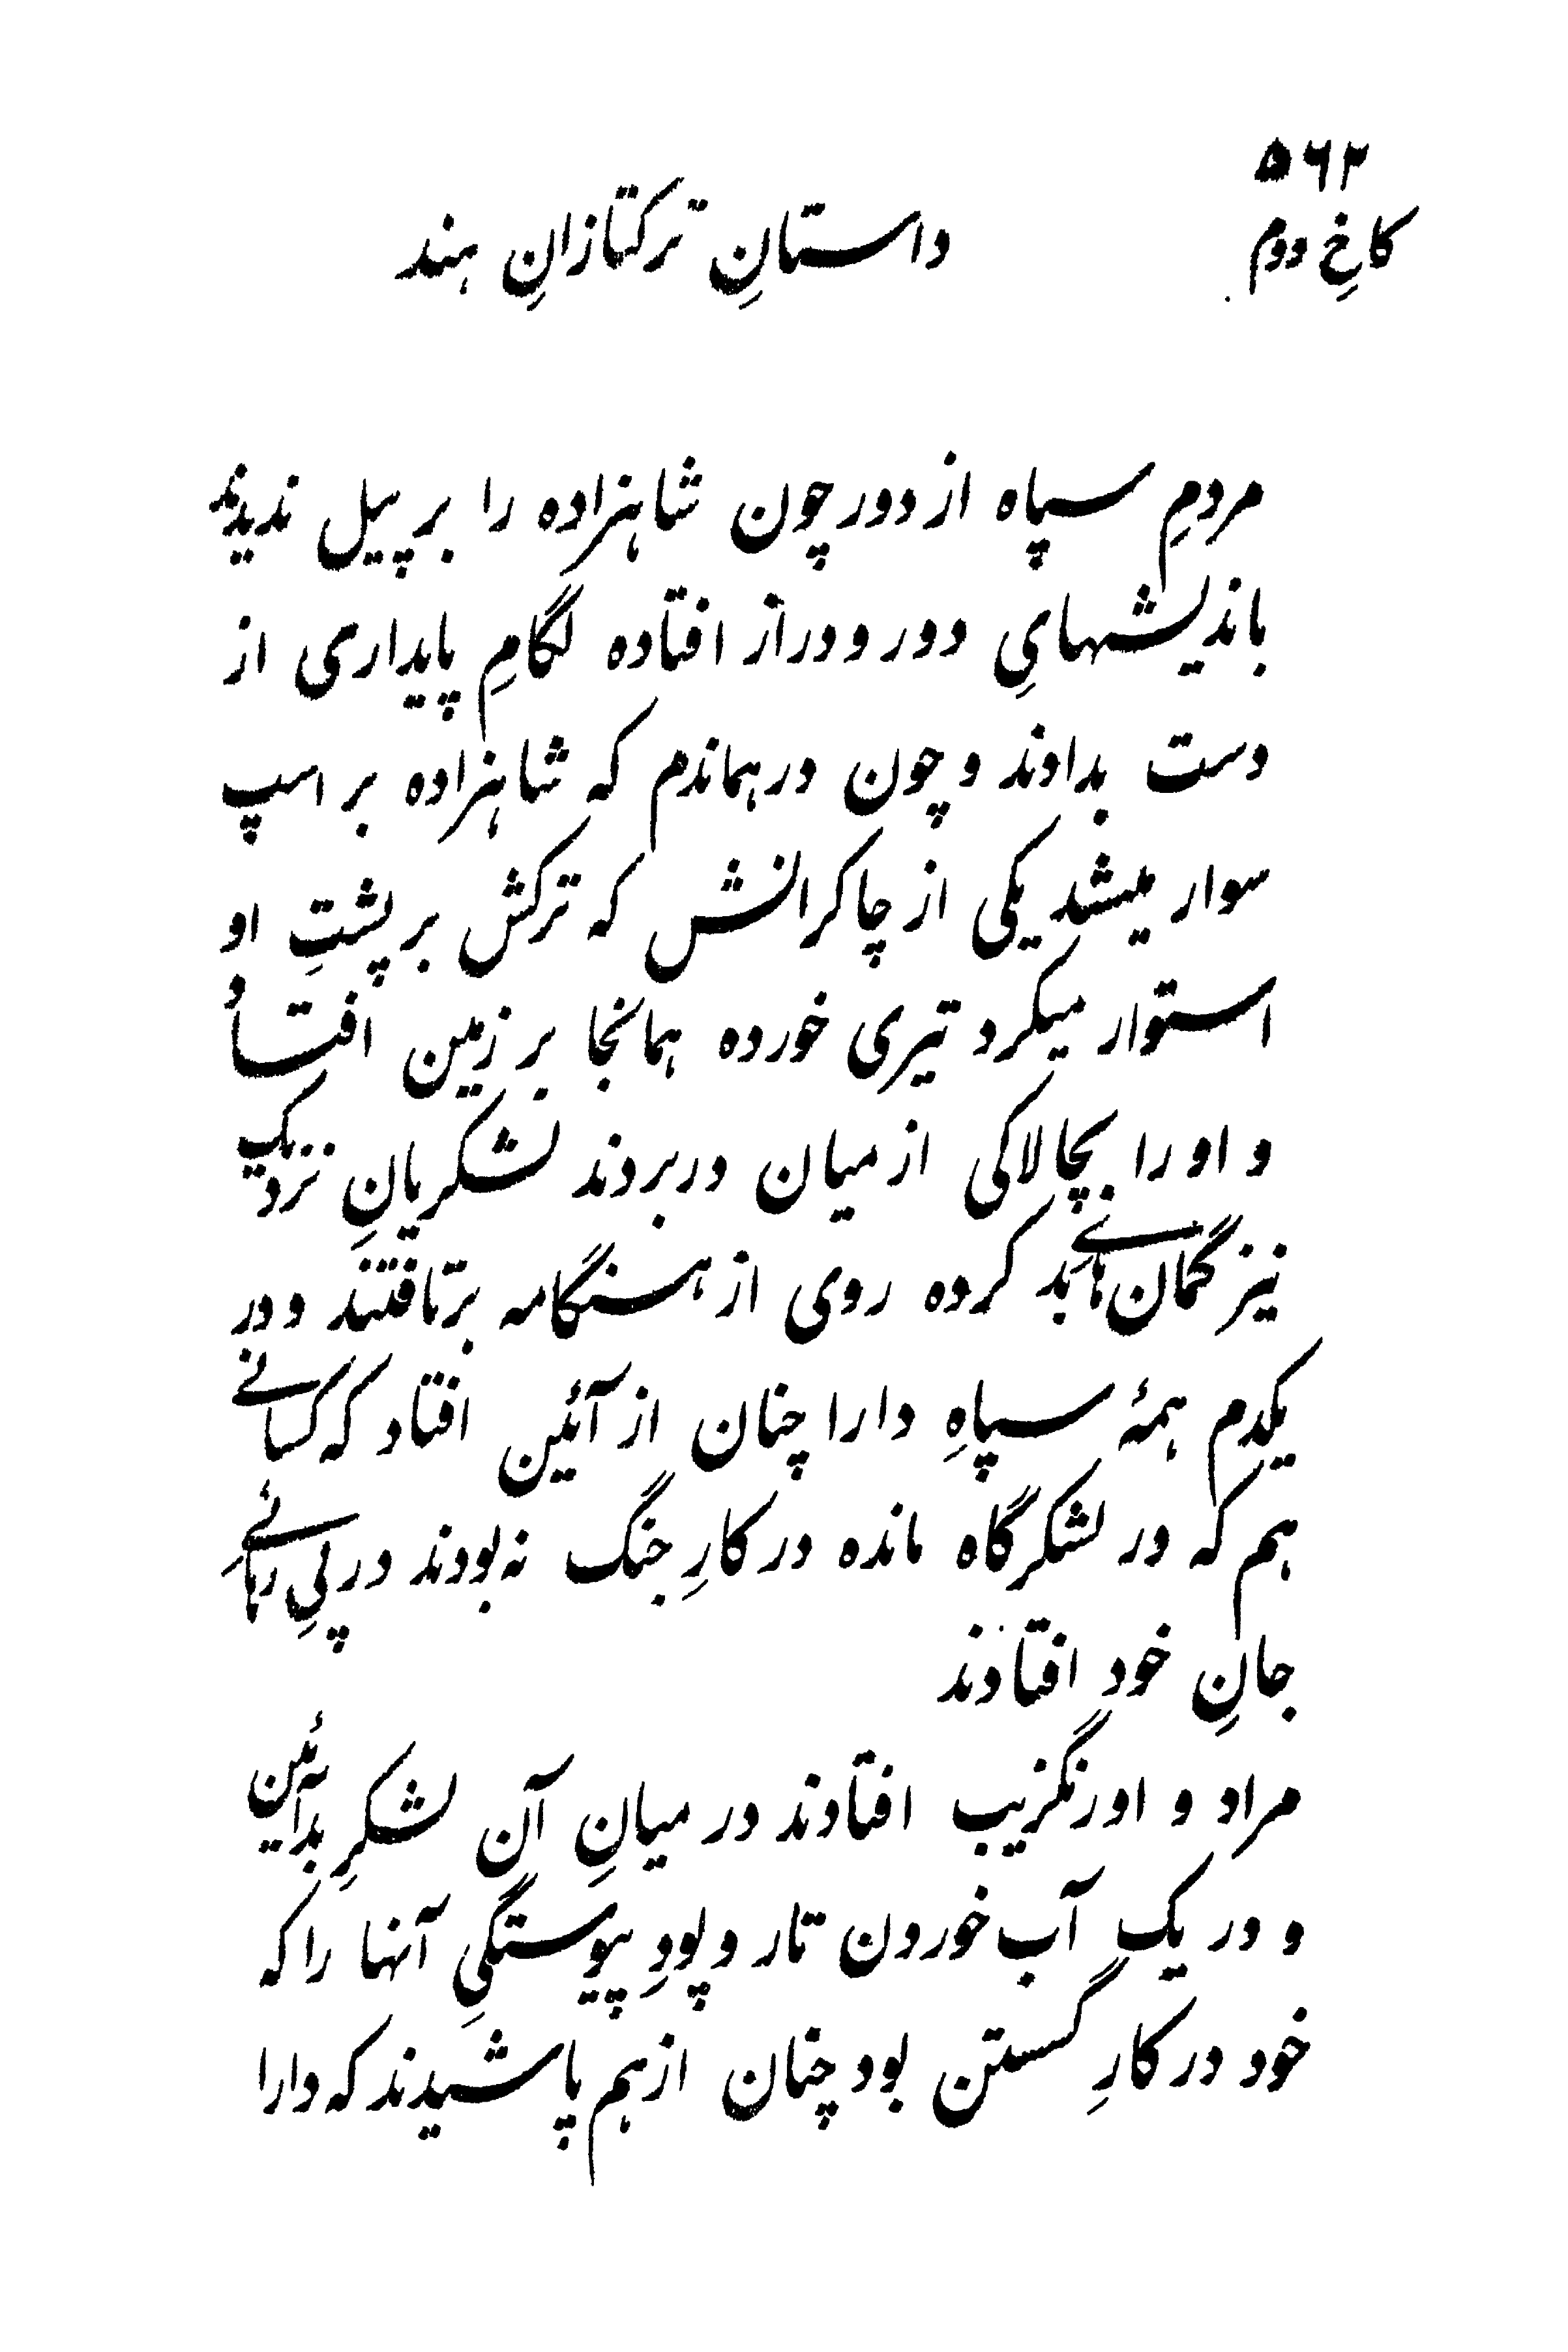 ۵۶۲
کاخِ دوم
داستانِ ترکتازانِ هند
مردمِ سپاه از دور چون شاهزاده را بر پیل ندیدند
باندیشهایِ دور و دراز افتاده لگامِ پایداری از
دست بدادند و چون در هماندم که شاهزاده بر اسپ
سوار میشد یکی از چاکرانش که ترکش بر پشتِ او
استوار میکرد تیری خورده همانجا بر زمین افتاد
و او را بچالاکی از میان در بردند لشکریانِ نزدیک
نیز گمان‌هاے بد کرده روی از هنگامه برتافتند و در
یکدم همهٔ سپاهِ دارا چنان از آئین افتاد که کسانے
هم که در لشکرگاه مانده در کارِ جنگ نه بودند در پیِ رهائےِ
جانِ خود افتادند
مراد و اورنگزیب افتادند در میانِ آن لشکرِ بدآئین
و در یک آب خوردن تار و پودِ پیوستگیِ آنها را که
خود در کارِ گسستن بود چنان از هم پاشیدند که دارا